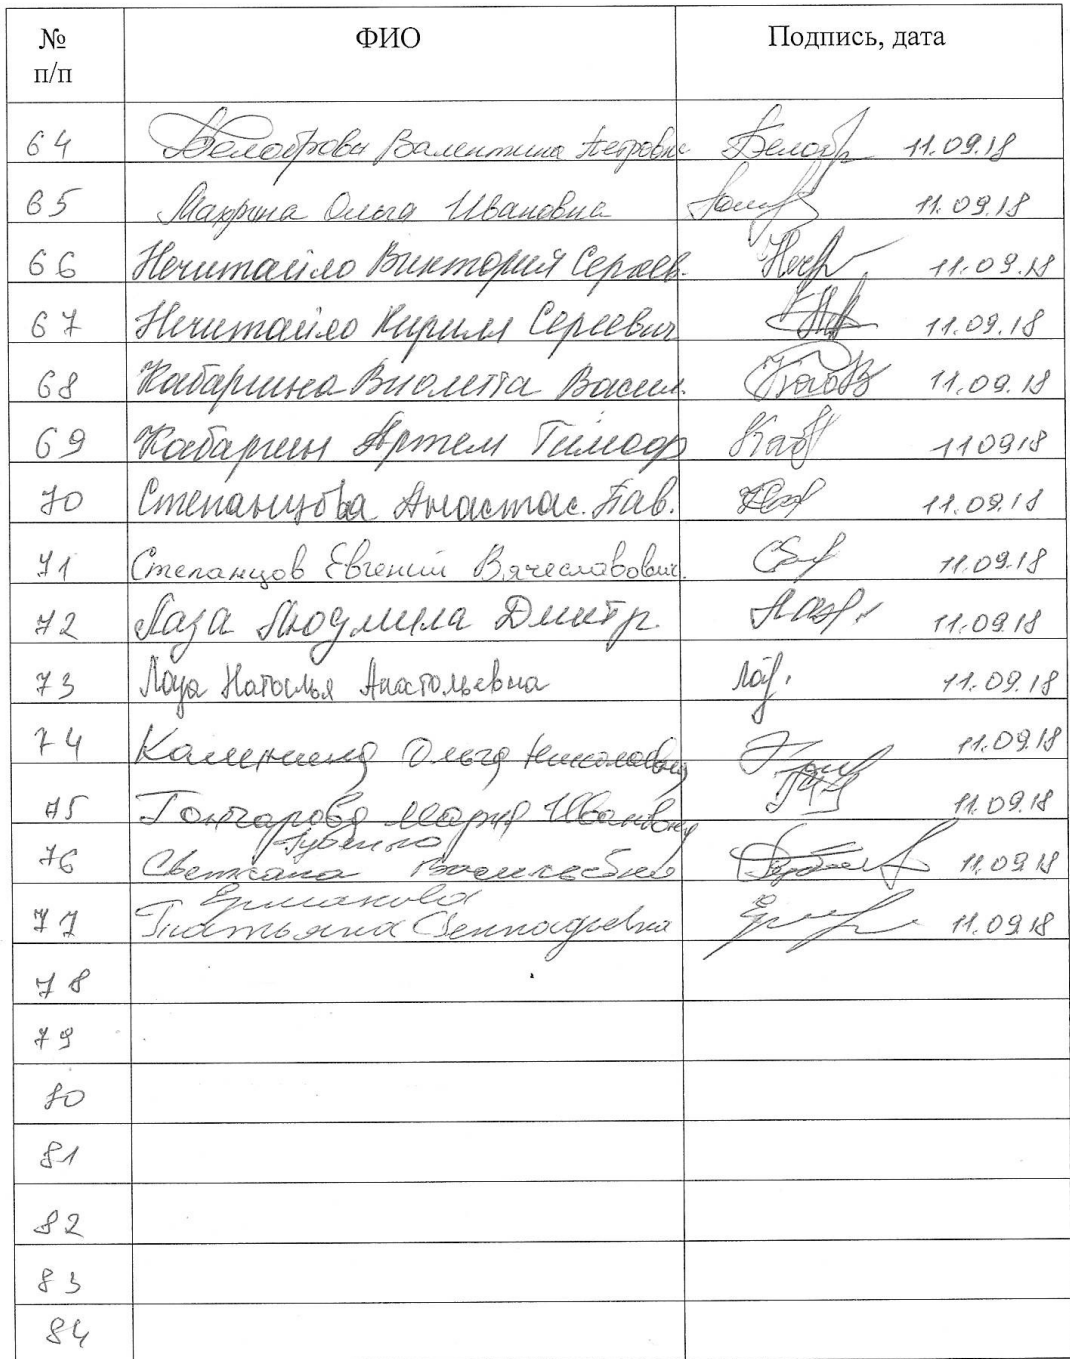 № ФИО Подпись, дата
п/п
64 Белоброва Валентина Петровна 11.09.18
65 Ольга Ивановна 11.09.18
66 Нечитайло Виктория Сергеев. 11.09.18
67 Нечитайло Кирилл Сергеевич 11.09.18
68 Кабаргина Виолетта Васил. 11.09.18
69 Кабаргин Артем Тимоф 110918
70 Степанцова Анастас. Пав. 11.09.18
71 Степанцов Евгений Вячеславович. 11.09.18
72 Лаза Людмила Дмитр. 11.09.18
73 Лоза Наталья Анатольевна 11.09.18
74 Калинина Ольга Николаевна 11.09.18
75 Гончарова Мария Ивановна 11.09.18
Губенко
76 Светлана Васильевна 11.09.18
Ермакова
77 Татьяна Геннадиевна 11.09.18
78
79
80
81
82
83
84